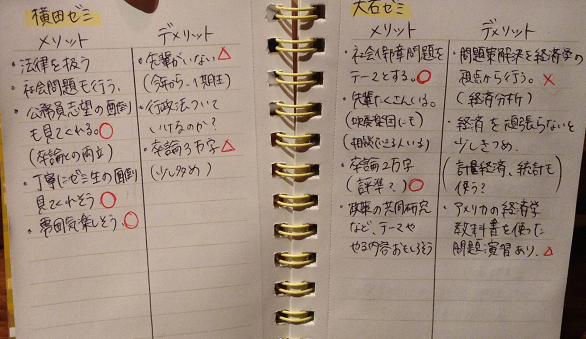 横田ゼミ
メリット
・法律を扱う
・社会問題も行う、
・公務員志望の面倒
も見てくれる。○
(卒論との両立)
・丁寧にゼミ生の面倒
見てくれそう ○
・雰囲気楽しそう、○
デメリット
・先輩がいない △
(今年から、1期生)
・行政法ついて
いけるのか?
・卒論3万字 △
(少し多め)
大石ゼミ
メリット
・社会保障問題を
テーマとする。○
・先輩たくさんいる。
(吹奏楽団にも)
(相談できる人いる)
・卒論2万字
(標準?) ○
・政策の共同研究
など、テーマや
やる内容おもしろそう
デメリット
・問題解決を経済学の
視点から行う。×
(経済分析)
・経済を頑張らないと
少しきつめ、
(計量経済、統計も
使う?
・アメリカの経済学
教科書を使った
問題演習あり、△